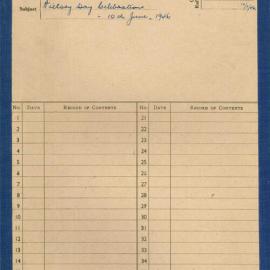 Subject Victory Day Celebrations
- 10th June, 1946
No. DATE RECORD OF CONTENTS No. DATE RECORD OF CONTENTS
1 21
2 22
3 23
4 24
5 25
6 26
7 27
8 28
9 29
10 30
11 31
12 32
13 33
14 34